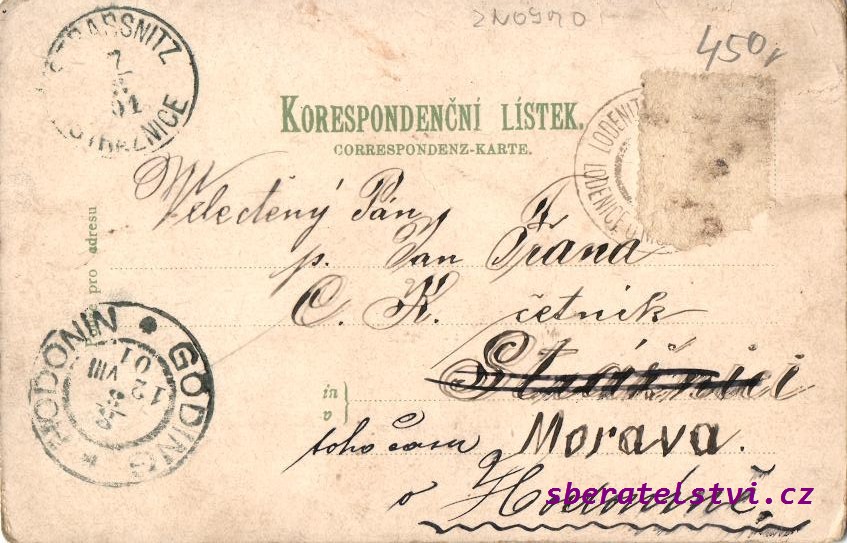 ZNOJMO
450,
STRASSNITZ
7
01
STRÁŽNICE
KORESPONDENČNÍ LÍSTEK.
CORRESPONDENZ-KARTE.
LODENITZ
LODENICE
pro adresu
Velectěný Pán
p. Jan Frana
C. K. četník
Strážnici
in
v
Morava.
toho času
v Hodoníně.
GÖDING * HODONIN
12
VIII
01
sberatelstvi.cz